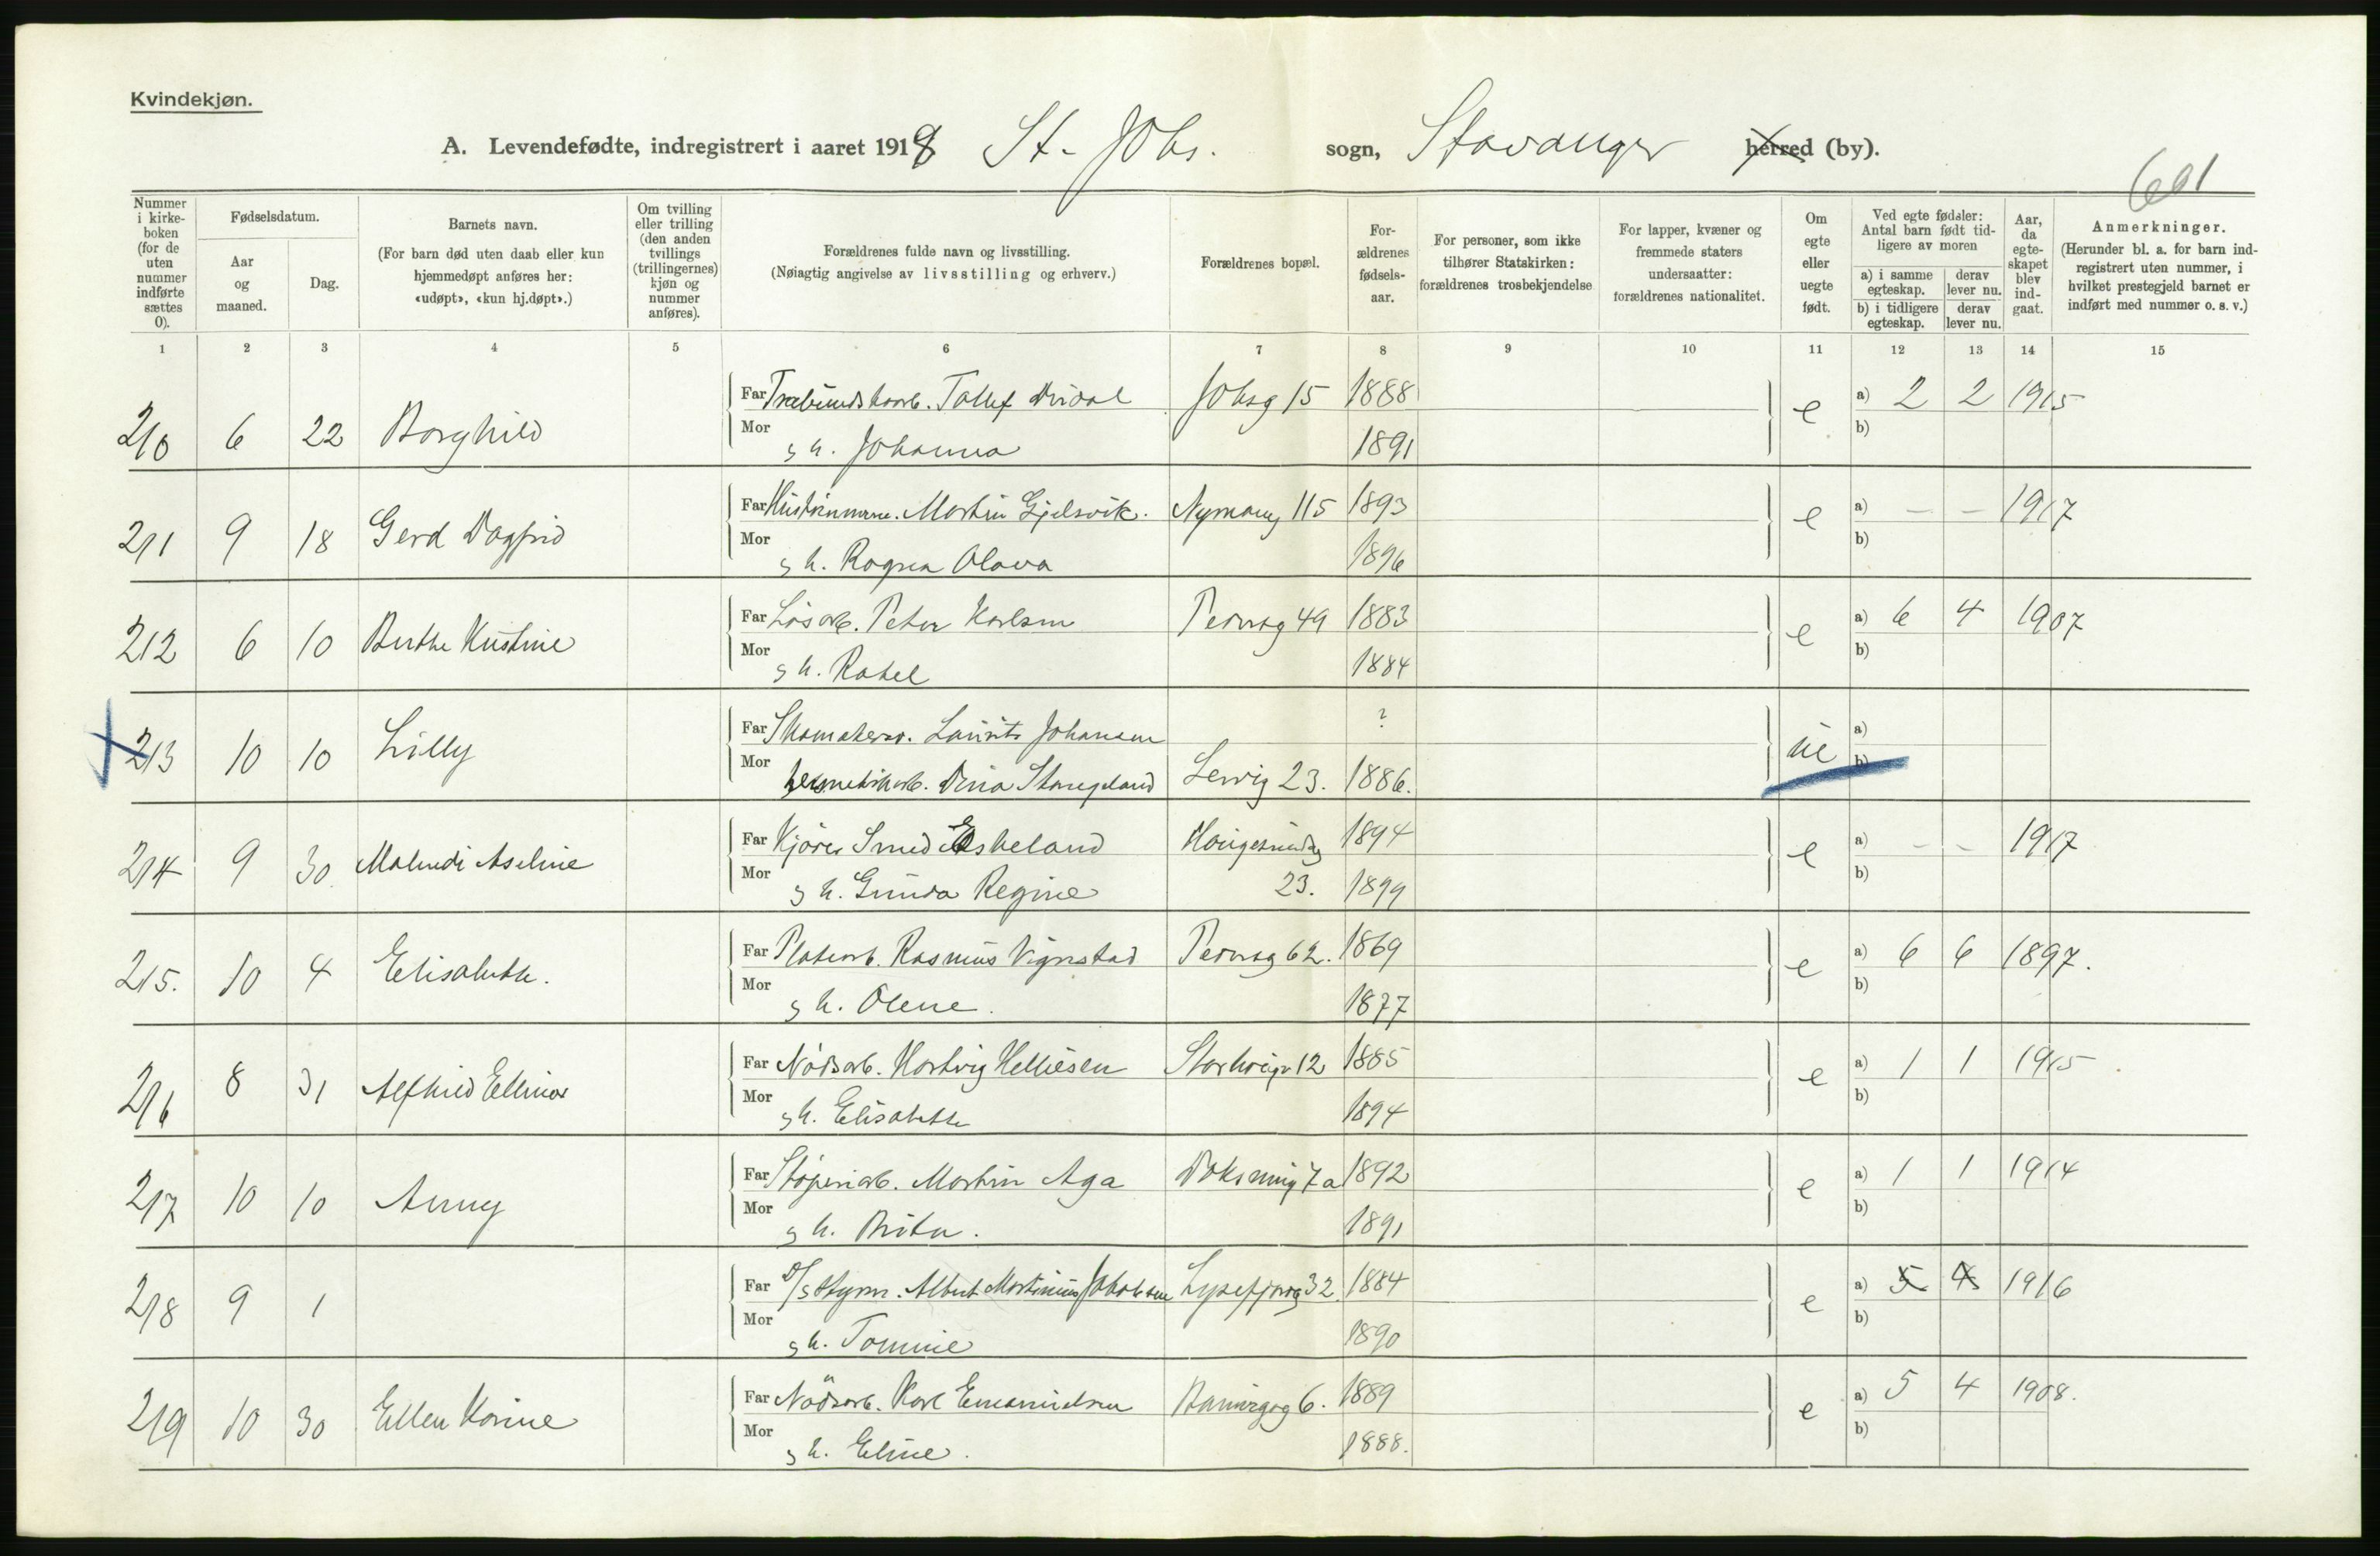 Kvindekjøn.
A. Levendefødte, indregistrert i aaret 1918 St. Johs. sogn, Stavanger herred (by).
601
Nummer i kirkeboken (for de uten nummer indførte sættes 0).
Fødselsdatum.
Aar og maaned.
Dag.
Barnets navn.
(For barn død uten daab eller kun hjemmedøpt anføres her: «udøpt», «kun hj.døpt».)
Om tvilling eller trilling (den anden tvillings (trillingernes) kjøn og nummer anføres).
Forældrenes fulde navn og livsstilling.
(Nøiagtig angivelse av livsstilling og erhverv.)
Forældrenes bopæl.
Forældrenes fødselsaar.
For personer, som ikke tilhører Statskirken: forældrenes trosbekjendelse
For lapper, kvæner og fremmede staters undersaatter: forældrenes nationalitet.
Om egte eller uegte født.
Ved egte fødsler: Antal barn født tidligere av moren
a) i samme egteskap. derav lever nu.
b) i tidligere egteskap. derav lever nu.
Aar, da egteskapet blev indgaat.
Anmerkninger.
(Herunder bl. a. for barn indregistrert uten nummer, i hvilket prestegjeld barnet er indført med nummer o. s. v.)
1 2 3 4 5 6 7 8 9 10 11 12 13 14 15
210 6 22 Borghild Far Tollef Johsg 15 1888 e a) 2 2 1915
Mor h. Johanna 1891 b)
211 9 18 Gerd Dagfrid Far Martin Gjelsvik. 115 1893 e a) - - 1917
Mor h. Ragna Olava 1896 b)
212 6 10 Berthe Kristine Far Løsarb. Peter Karlsen Pedersg 49 1883 e a) 6 4 1907
Mor h. Rakel 1884 b)
213 10 10 Lilly Far Skomakersv. Laurits Johansen ? ue a)
Mor hermetikarb. Dina Stangeland Lervig 23. 1886. b)
214 9 30 Malmfri Aseline Far Kjører Smed Eskeland Haugesundsg 1894 e a) - - 1917
Mor h. Gunda Regine 23. 1899 b)
215. 10 4 Elisabeth. Far Platearb. Rasmus Vignestad Pedersg 62. 1869 e a) 6 6 1897.
Mor h. Olene. 1877 b)
216 8 31 Alfhild Ellinor Far Hartvig Helliesen 12 1885 e a) 1 1 1915
Mor h. Elisabeth 1894 b)
217 10 10 Anny Far Støperiarb. Martin Aga 7a 1892 e a) 1 1 1914
Mor h. Brita. 1891 b)
218 9 1 Far D/S Styrm. Albert Martinius Jakobsen Lysefjordg 32. 1884 e a) 5 4 1916
Mor h. Tomine 1890 b)
219 10 30 Ellen Karine Far Karl Emanuelsen 6. 1889 e a) 5 4 1908.
Mor h. Eline. 1888. b)